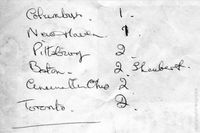 Columbus. 1.
New Haven. 1
Pittsburg 2
Boston - 2 Shubert.
Cincinnati Ohio 2.
Toronto. 2.